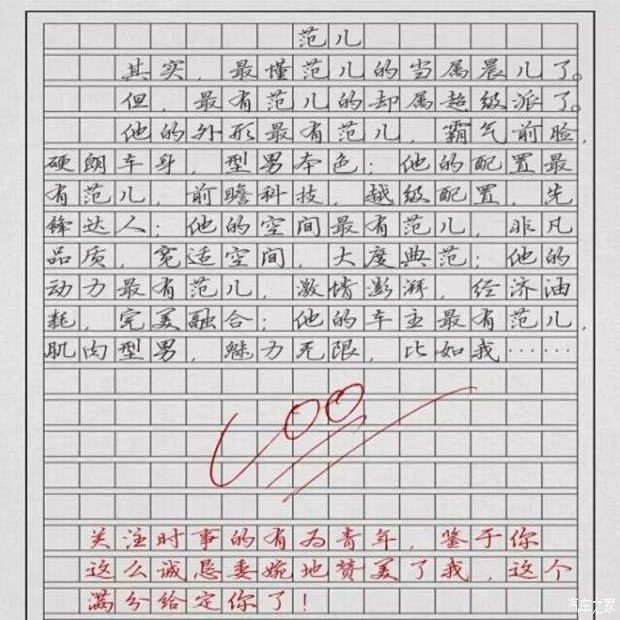 范儿
其实，最懂范儿的当属晨儿了。
但，最有范儿的却属超级派了。
他的外形最有范儿，霸气前脸，
硬朗车身，型男本色；他的配置最
有范儿，前瞻科技，越级配置，先
锋达人；他的空间最有范儿，非凡
品质，宽适空间，大度典范；他的
动力最有范儿，激情澎湃，经济油
耗，完美融合；他的车主最有范儿，
肌肉型男，魅力无限，比如我……
100
关注时事的有为青年，鉴于你
这么诚恳委婉地赞美了我，这个
满分给定你了！
汽车之家